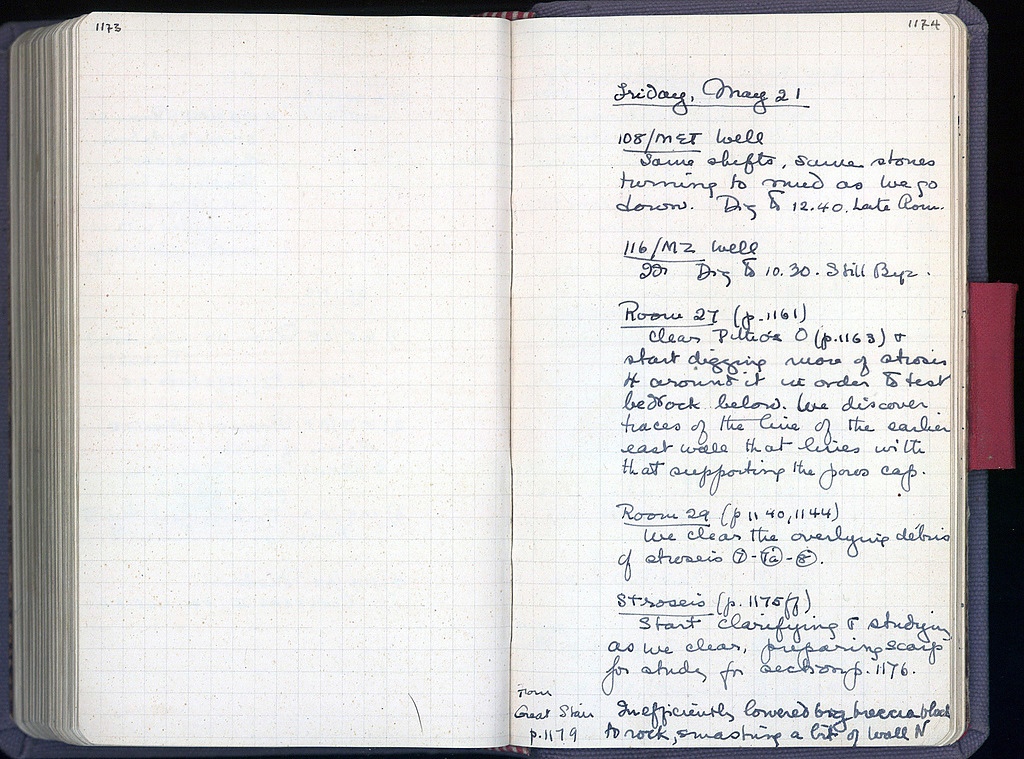 1173
1174
Friday, May 21
108/MET Well
Same shifts, same stones
turning to mud as we go
down. Dig to 12.40. Late Rom.
116/MZ Well
Dig to 10.30. Still Byz.
Room 27 (p.1161)
Clear Pithos O (p.1163) &
start digging more of strosis
4 around it in order to test
bedrock below. We discover
traces of the line of the earlier
east wall that lines with
that supporting the poros cap.
Room 29 (p 1140, 1144)
We clear the overlying débris
of stroseis 7-7a-8.
Stroseis (p. 1175ff)
Start clarifying & studying
as we clear, preparing scarp
for study for section p. 1176.
From
Great Stair
p.1179
Inefficiently lowered big breccia block
to rock, smashing a bit of Wall N